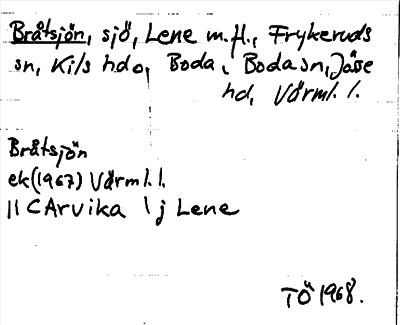 Bråtsjön, sjö, Lene m.fl., Frykeruds
sn, Kils hdo, Boda, Boda sn, Jösse
hd, Värml. l.
Bråtsjön
ek (1967) Värml. l.
11 C Arvika \ j Lene
TÖ 1968.